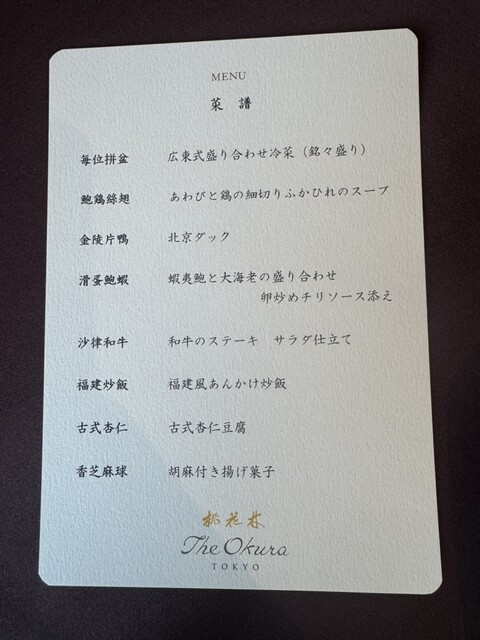 MENU
菜譜
毎位拼盆 広東式盛り合わせ冷菜（銘々盛り）
鮑鶏絲翅 あわびと鶏の細切りふかひれのスープ
金陵片鴨 北京ダック
滑蛋鮑蝦 蝦夷鮑と大海老の盛り合わせ
卵炒めチリソース添え
沙律和牛 和牛のステーキ　サラダ仕立て
福建炒飯 福建風あんかけ炒飯
古式杏仁 古式杏仁豆腐
香芝麻球 胡麻付き揚げ菓子
桃花林
The Okura
TOKYO